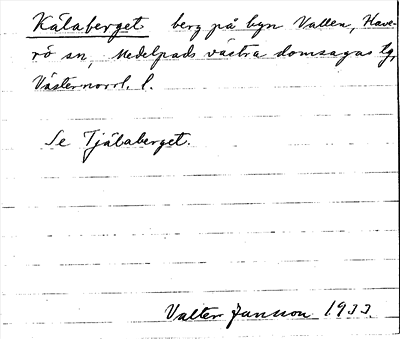 Kälaberget berg på byn Vallen, Have-
rö sn, Medelpads västra domsagas tg,
Västernorrl. l.
Se Tjälaberget.
Valter Jansson 1933.